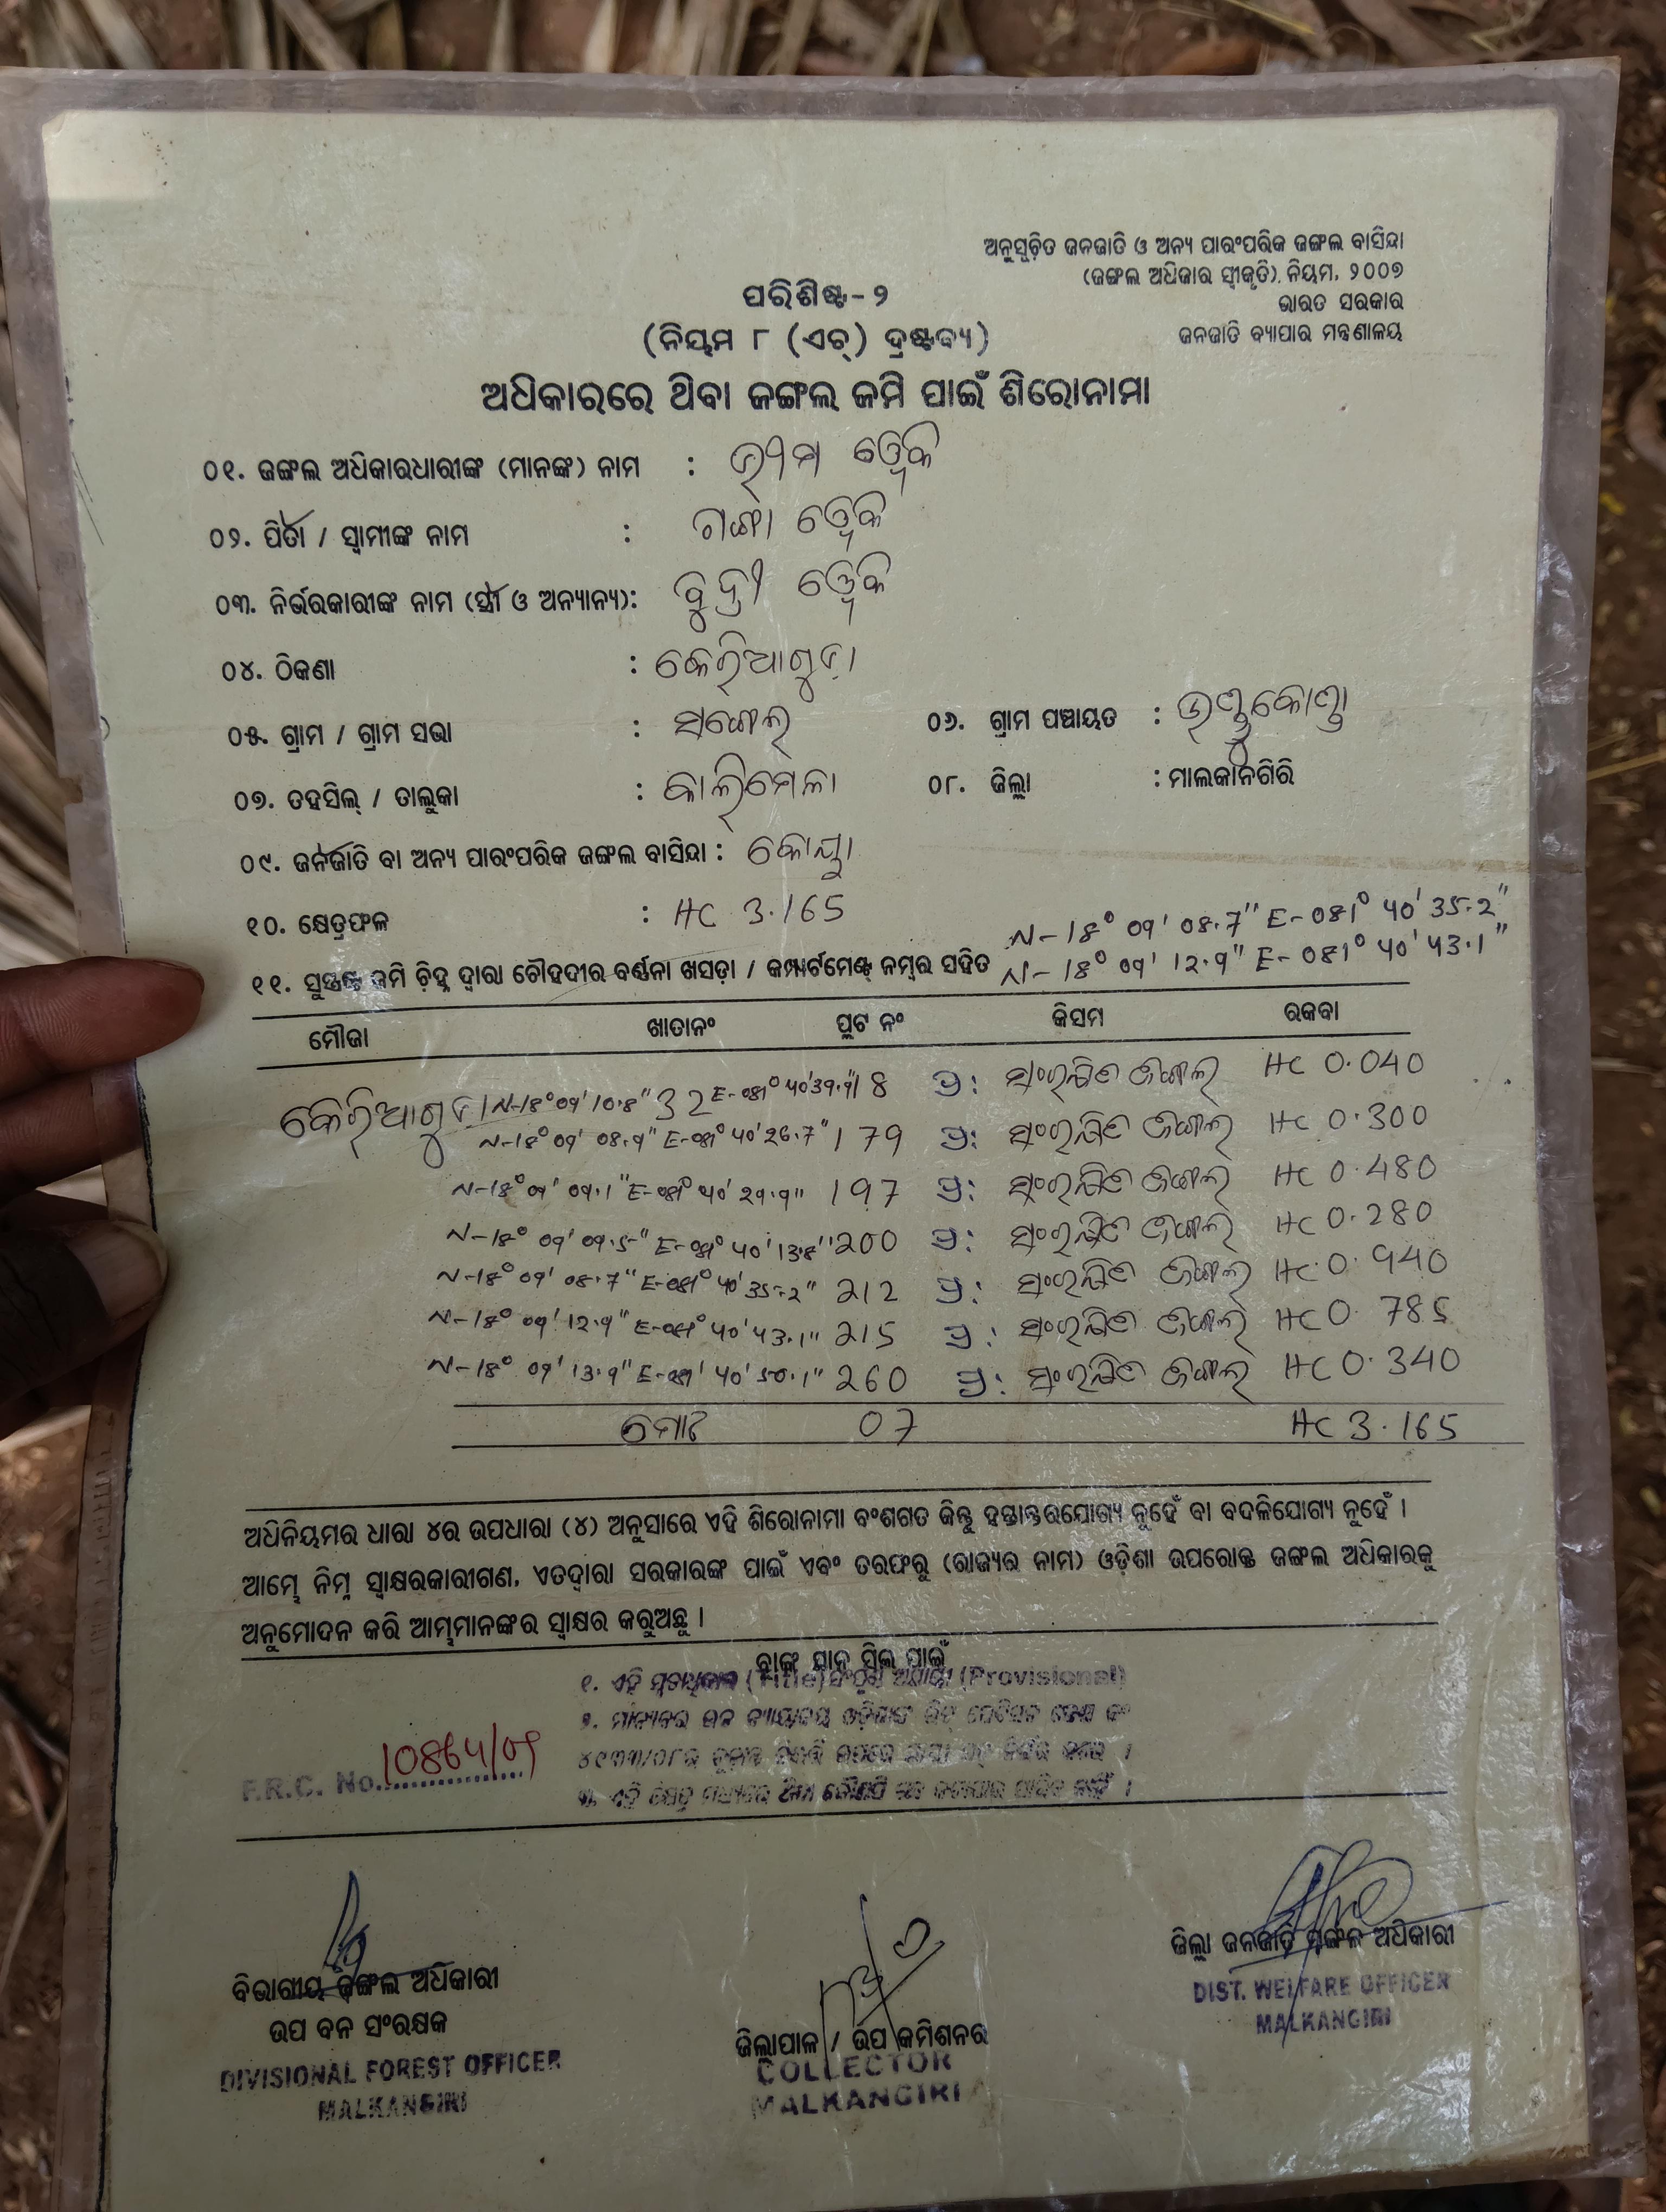 ଅନୁସୂଚିତ ଜନଜାତି ଓ ଅନ୍ୟ ପାରଂପରିକ ଜଙ୍ଗଲ ବାସିନ୍ଦା
(ଜଙ୍ଗଲ ଅଧିକାର ସ୍ୱୀକୃତି). ନିୟମ, ୨୦୦୭
ଭାରତ ସରକାର
ଜନଜାତି ବ୍ୟାପାର ମନ୍ତ୍ରଣାଳୟ
ପରିଶିଷ୍ଟ-୨
(ନିୟମ ୮ (ଏଚ୍) ଦ୍ରଷ୍ଟବ୍ୟ)
ଅଧିକାରରେ ଥିବା ଜଙ୍ଗଲ ଜମି ପାଇଁ ଶିରୋନାମା
୦୧. ଜଙ୍ଗଲ ଅଧିକାରଧାରୀଙ୍କ (ମାନଙ୍କ) ନାମ :
୦୨. ପିତା / ସ୍ୱାମୀଙ୍କ ନାମ : ଗଙ୍ଗା
୦୩. ନିର୍ଭରକାରୀଙ୍କ ନାମ (ସ୍ତ୍ରୀ ଓ ଅନ୍ୟାନ୍ୟ):
୦୪. ଠିକଣା : କେରିଆଗୁଡ଼ା
୦୫. ଗ୍ରାମ / ଗ୍ରାମ ସଭା : ସଙ୍ଗେଲ୍ ୦୬. ଗ୍ରାମ ପଞ୍ଚାୟତ :
୦୭. ତହସିଲ୍ / ତାଲୁକା : କାଲିମେଳା ୦୮. ଜିଲ୍ଲା : ମାଲକାନଗିରି
୦୯. ଜନଜାତି ବା ଅନ୍ୟ ପାରଂପରିକ ଜଙ୍ଗଲ ବାସିନ୍ଦା : କୋୟା
୧୦. କ୍ଷେତ୍ରଫଳ : HC 3.165
N-18° 09' 08.7" E-081° 40' 35.2"
୧୧. ସୁସ୍ପଷ୍ଟ ଜମି ଚିହ୍ନ ଦ୍ୱାରା ଚୌହଦୀର ବର୍ଣ୍ଣନା ଖସଡ଼ା / କମ୍ପାର୍ଟମେଣ୍ଟ୍ ନମ୍ବର ସହିତ N-18° 09' 12.9" E-081° 40' 43.1"
ମୌଜା ଖାତାନଂ ପ୍ଲଟ ନଂ କିସମ ରକବା
କେରିଆଗୁଡ଼ା N-18° 09' 10.8" 32 E-081° 40' 39.9" 18 ପ୍ର: ସଂରକ୍ଷିତ ଜଙ୍ଗଲ HC 0.040
N-18° 09' 08.9" E-081° 40' 26.7" 179 ପ୍ର: ସଂରକ୍ଷିତ ଜଙ୍ଗଲ HC 0.300
N-18° 09' 09.1" E-081° 40' 29.9" 197 ପ୍ର: ସଂରକ୍ଷିତ ଜଙ୍ଗଲ HC 0.480
N-18° 09' 09.5" E-081° 40' 13.8" 200 ପ୍ର: ସଂରକ୍ଷିତ ଜଙ୍ଗଲ HC 0.280
N-18° 09' 08.7" E-081° 40' 35.2" 212 ପ୍ର: ସଂରକ୍ଷିତ ଜଙ୍ଗଲ HC 0.940
N-18° 09' 12.9" E-081° 40' 43.1" 215 ପ୍ର: ସଂରକ୍ଷିତ ଜଙ୍ଗଲ HC 0.785
N-18° 09' 13.9" E-081° 40' 50.1" 260 ପ୍ର: ସଂରକ୍ଷିତ ଜଙ୍ଗଲ HC 0.340
ମୋଟ 07 HC 3.165
ଅଧିନିୟମର ଧାରା ୪ର ଉପଧାରା (୪) ଅନୁସାରେ ଏହି ଶିରୋନାମା ବଂଶଗତ କିନ୍ତୁ ହସ୍ତାନ୍ତରଯୋଗ୍ୟ ନୁହେଁ ବା ବଦଳିଯୋଗ୍ୟ ନୁହେଁ ।
ଆମ୍ଭେ ନିମ୍ନ ସ୍ୱାକ୍ଷରକାରୀଗଣ, ଏତଦ୍ୱାରା ସରକାରଙ୍କ ପାଇଁ ଏବଂ ତରଫରୁ (ରାଜ୍ୟର ନାମ) ଓଡ଼ିଶା ଉପରୋକ୍ତ ଜଙ୍ଗଲ ଅଧିକାରକୁ
ଅନୁମୋଦନ କରି ଆମ୍ଭମାନଙ୍କର ସ୍ୱାକ୍ଷର କରୁଅଛୁ ।
୧. ଏହି (Title) (Provisional)
F.R.C. No.
ବିଭାଗୀୟ ଜଙ୍ଗଲ ଅଧିକାରୀ
ଉପ ବନ ସଂରକ୍ଷକ
DIVISIONAL FOREST OFFICER
MALKANGIRI
ଜିଲ୍ଲାପାଳ / ଉପ କମିଶନର
COLLECTOR
MALKANGIRI
ଜିଲ୍ଲା ଜନଜାତି ମଙ୍ଗଳ ଅଧିକାରୀ
DIST. WELFARE OFFICER
MALKANGIRI